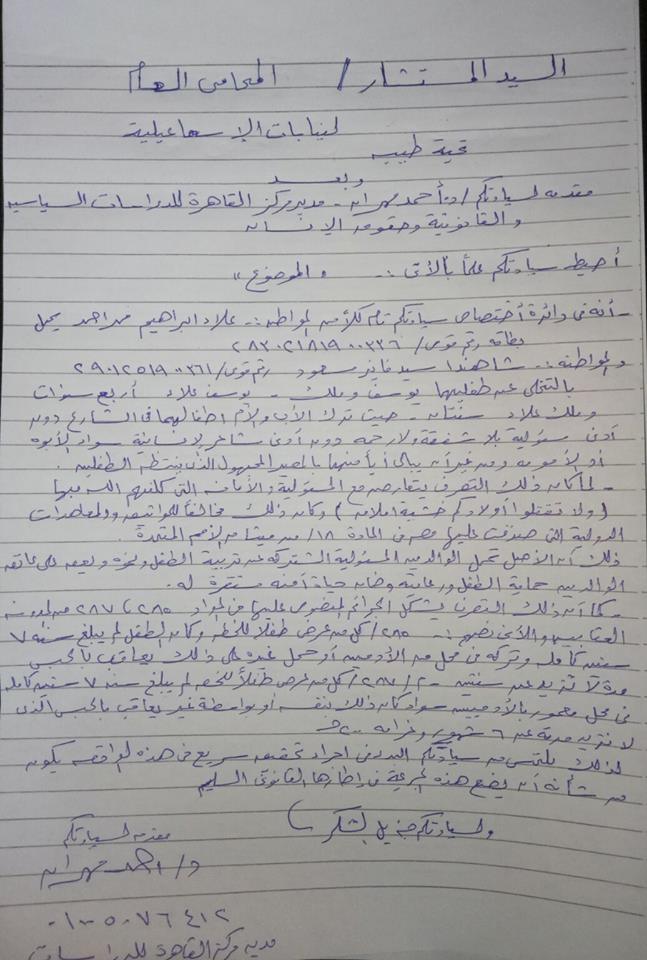 السيد المستشار / المحامى العام
لنيابات الإسماعيلية
تحية طيبه
وبعد
مقدمه لسيادتكم / د/ أحمد مهران - مدير مركز القاهرة للدراسات السياسيه
والقانونية وحقوق الإنسان
أحيط سيادتكم علماً بالأتى :- « الموضوع »
- أنه فى دائرة أختصاص سيادتكم قام كلاً من المواطن :- علاء ابراهيم محمد احمد يحمل
بطاقه رقم قومى / ٢٨٣٠٢١٨١٩٠٠٣٣٦
والمواطنة :- شاهندا سيد فايز مسعود رقم قومى / ٢٩٠١٢٥١٩٠٠٣٦١
بالتخلى عن طفليهما يوسف وملك - يوسف علاء أربع سنوات
وملك علاء سنتان - حيث ترك الأب والأم اطفالهما فى الشارع دون
أدنى مسئولية بلا شفقة ولا رحمه دون أدنى مشاعر لإنسانية سواء الأبوه
أو الأمومه ودون أن يبالى أياً منهما بالمصير المجهول الذى ينتظر الطفلين .
- لما كان ذلك التصرف يتعارض مع المسئولية والأمانه التى كلفهم الله بها
( ولا تقتلوا أولادكم خشية إملاق ) وكان ذلك مخالفاً للمواثيق والمعاهدات
الدولية التى صدقت عليها مصر فى المادة ١٨ / من ميثاق الأمم المتحدة .
ذلك أن الأصل تحمل الوالدين المسئولية المشتركة عن تربية الطفل ونموه ويقع على عاتق
الوالدين حماية الطفل ورعايته وضمان حياة آمنه مستقرة له .
- كما أن ذلك التصرف يشكل الجرائم المنصوص عليها فى المواد ٢٨٥ ، ٢٨٧ من قانون
العقوبات والأتى نصهم :- ٢٨٥ / كل من عرض طفلاً للخطر وكان الطفل لم يبلغ سنه ٧
سنين كامله وتركه فى محل خال من الأدميين أو حمل غيره على ذلك يعاقب بالحبس
مدة لا تزيد عن سنتين - م / ٢٨٧ / كل من عرض طفلاً للخطر لم يبلغ سنه ٧ سنين كامله
فى محل معمور بالأدميين سواء كان ذلك بنفسه أو بواسطة غيره يعاقب بالحبس الذى
لا تزيد مدته عن ٦ شهور وغرامه
لذلك نلتمس من سيادتكم البدء فى اجراء تحقيق سريع فى هذه الواقعه يكون
من شأنه أن يضع هذه الجريمة فى إطارها القانونى السليم
ولسيادتكم جزيل الشكر
مقدمه لسيادتكم
د / احمد مهران
٠١٠٠٥٠٧٦٤١٢
مدير مركز القاهرة للدراسات